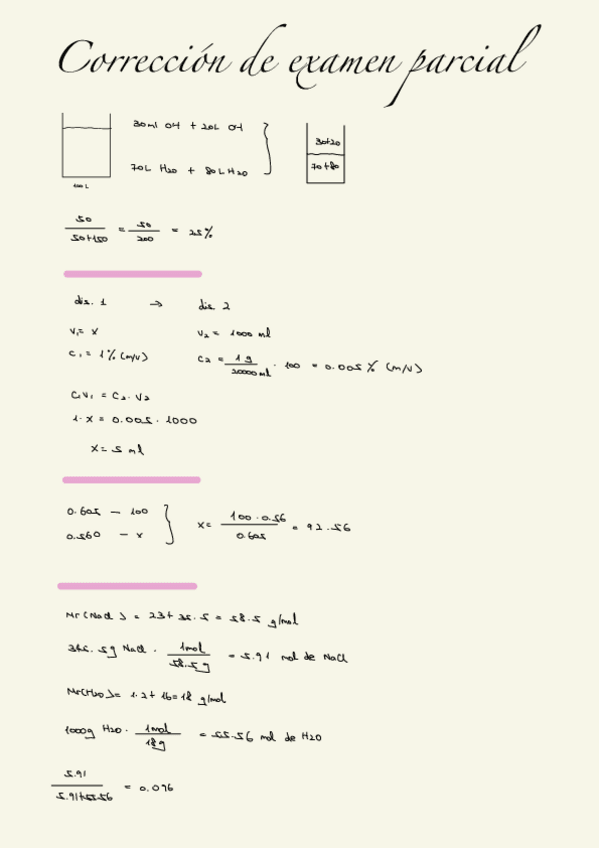 Corrección de examen parcial
30ml OH + 20L OH
70L H2O + 80L H2O
30+20
70+80
100 L
50 / 50+150 = 50 / 200 = 25%
dis. 1 → dis. 2
V1 = x
V2 = 1000 ml
C1 = 1% (m/v)
C2 = 1 g / 20000 ml · 100 = 0.005% (m/v)
C1V1 = C2 · V2
1 · x = 0.005 · 1000
x = 5 ml
0.605 — 100
0.560 — x
x = 100 · 0.56 / 0.605 = 92.56
Mr(NaCl) = 23 + 35.5 = 58.5 g/mol
345.5g NaCl · 1mol / 58.5g = 5.91 mol de NaCl
Mr(H2O) = 1·2 + 16 = 18 g/mol
1000g H2O · 1mol / 18g = 55.56 mol de H2O
5.91 / 5.91+55.56 = 0.096